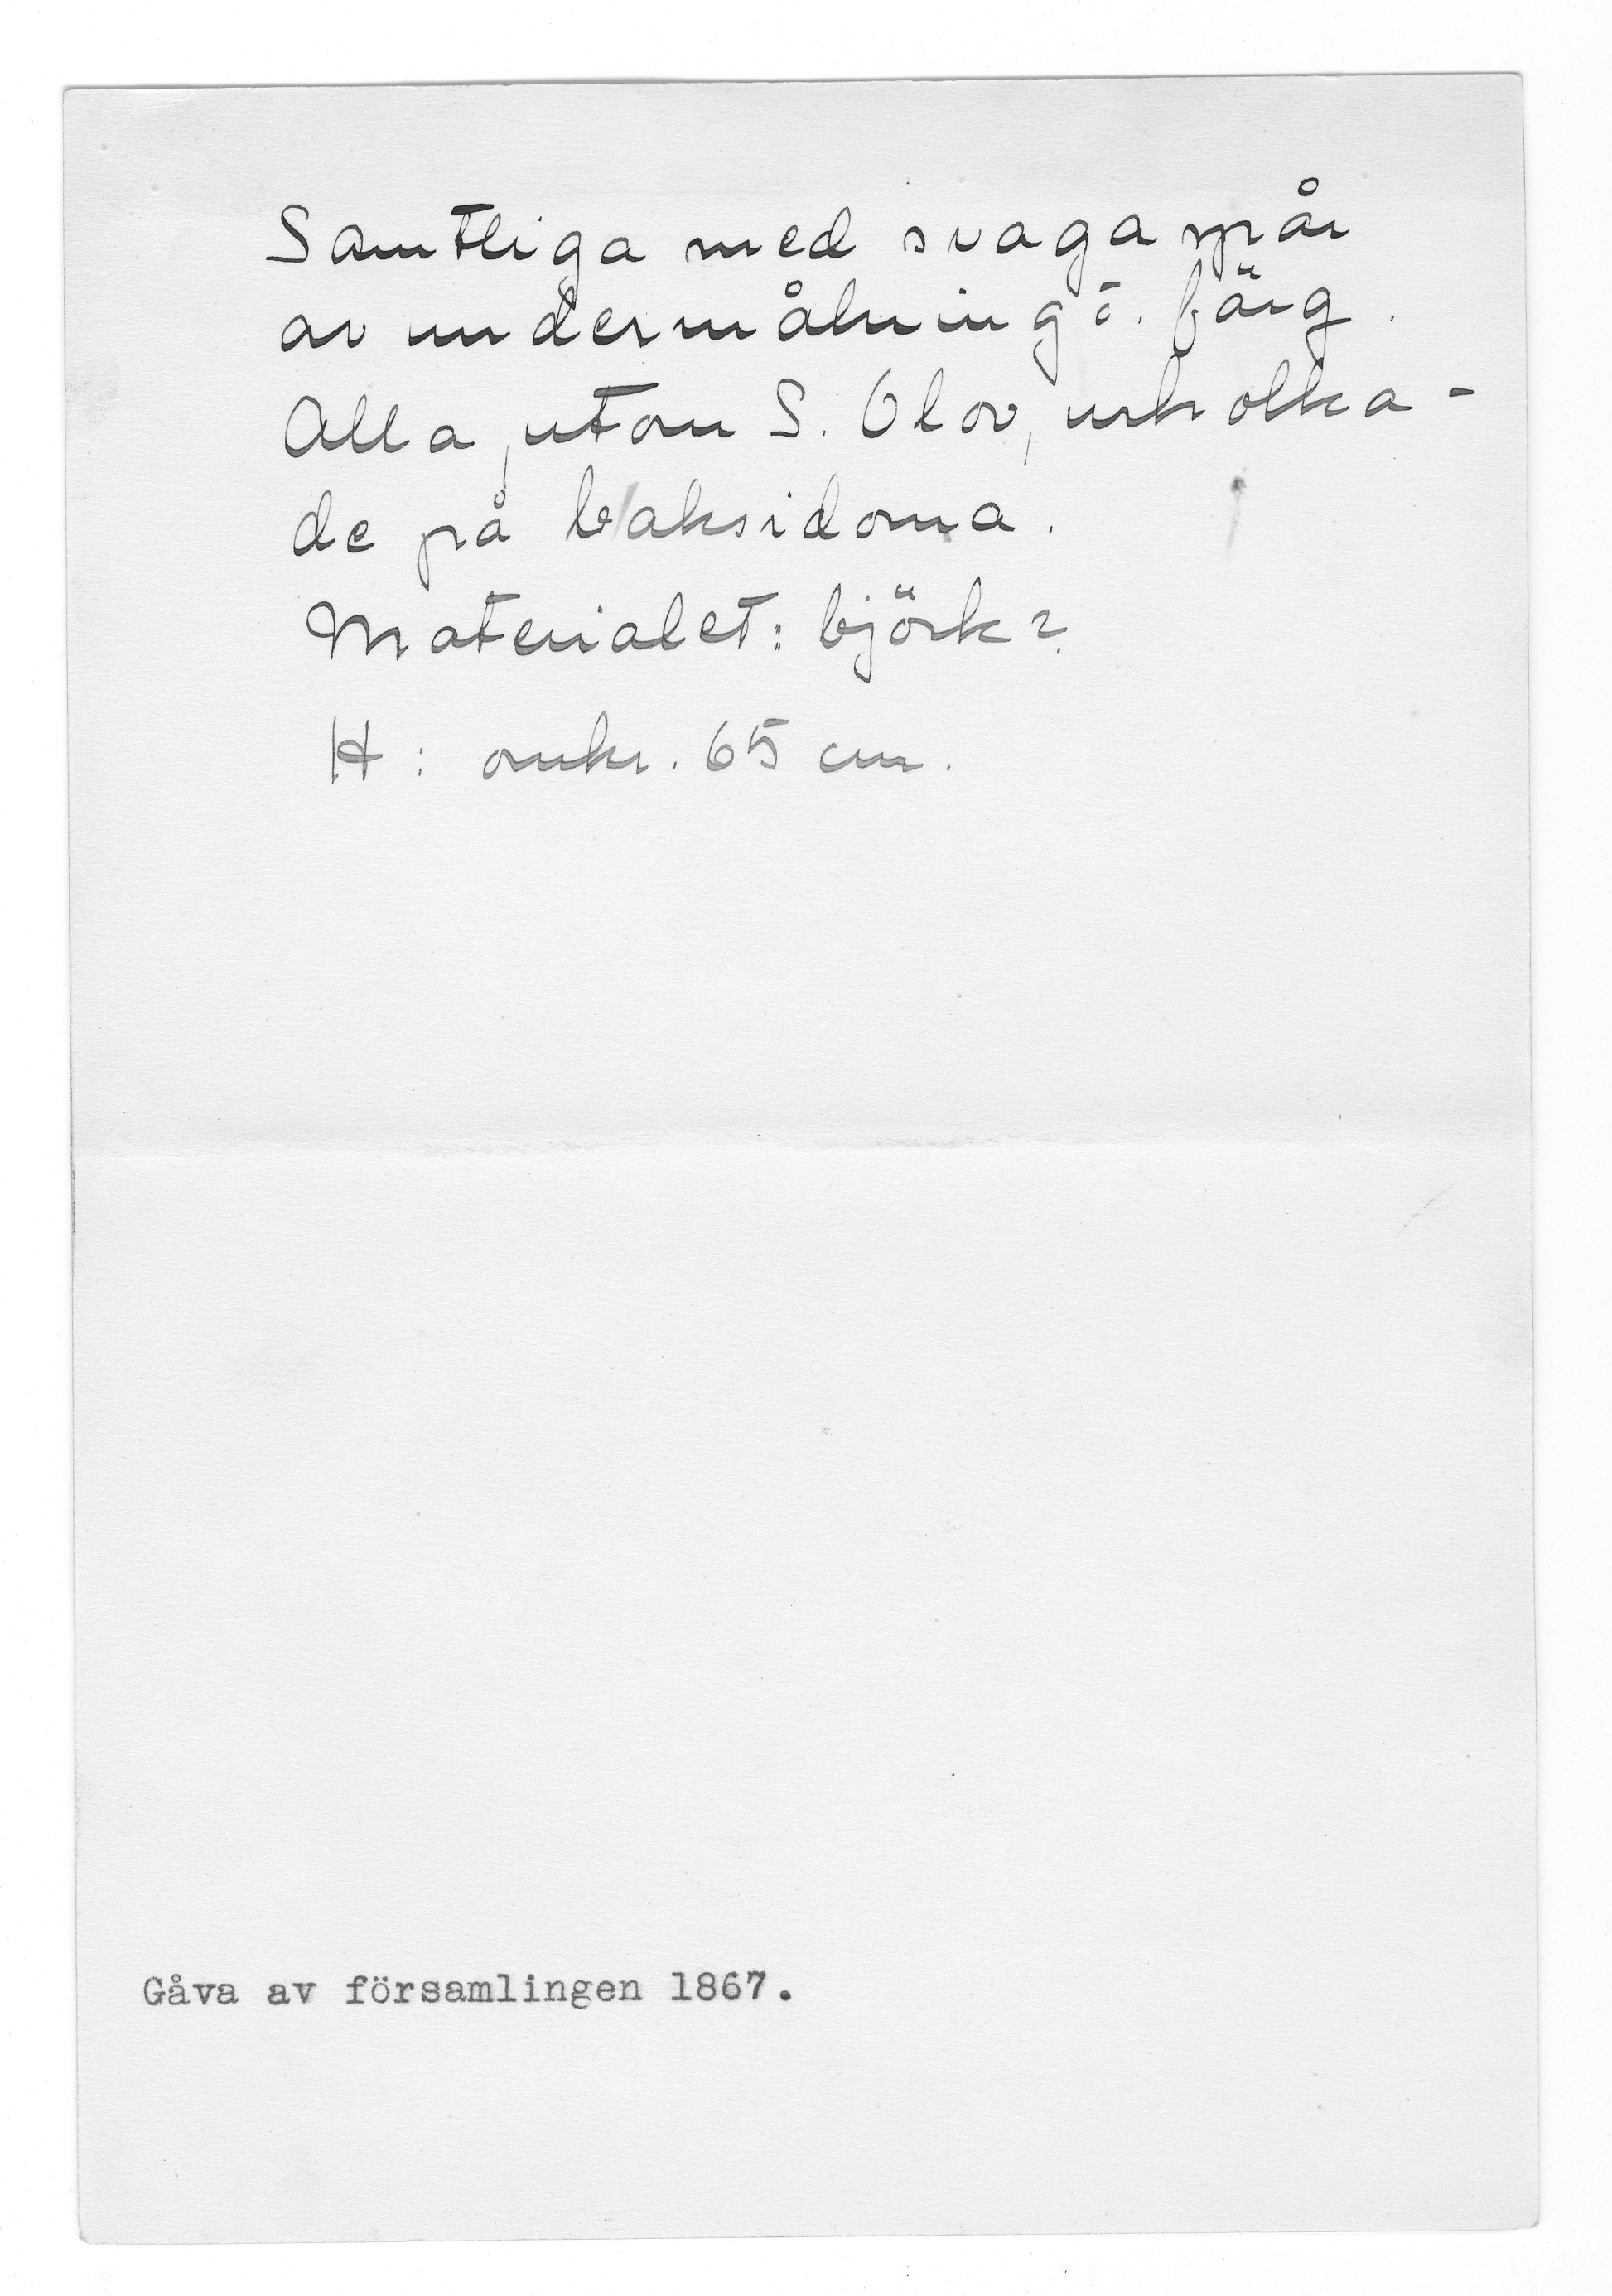 Samtliga med svaga spår
av undermålning o. färg.
Alla, utom S. Olov, urholka-
de på baksidorna.
Materialet: björk?
H: omkr. 65 cm.
Gåva av församlingen 1867.